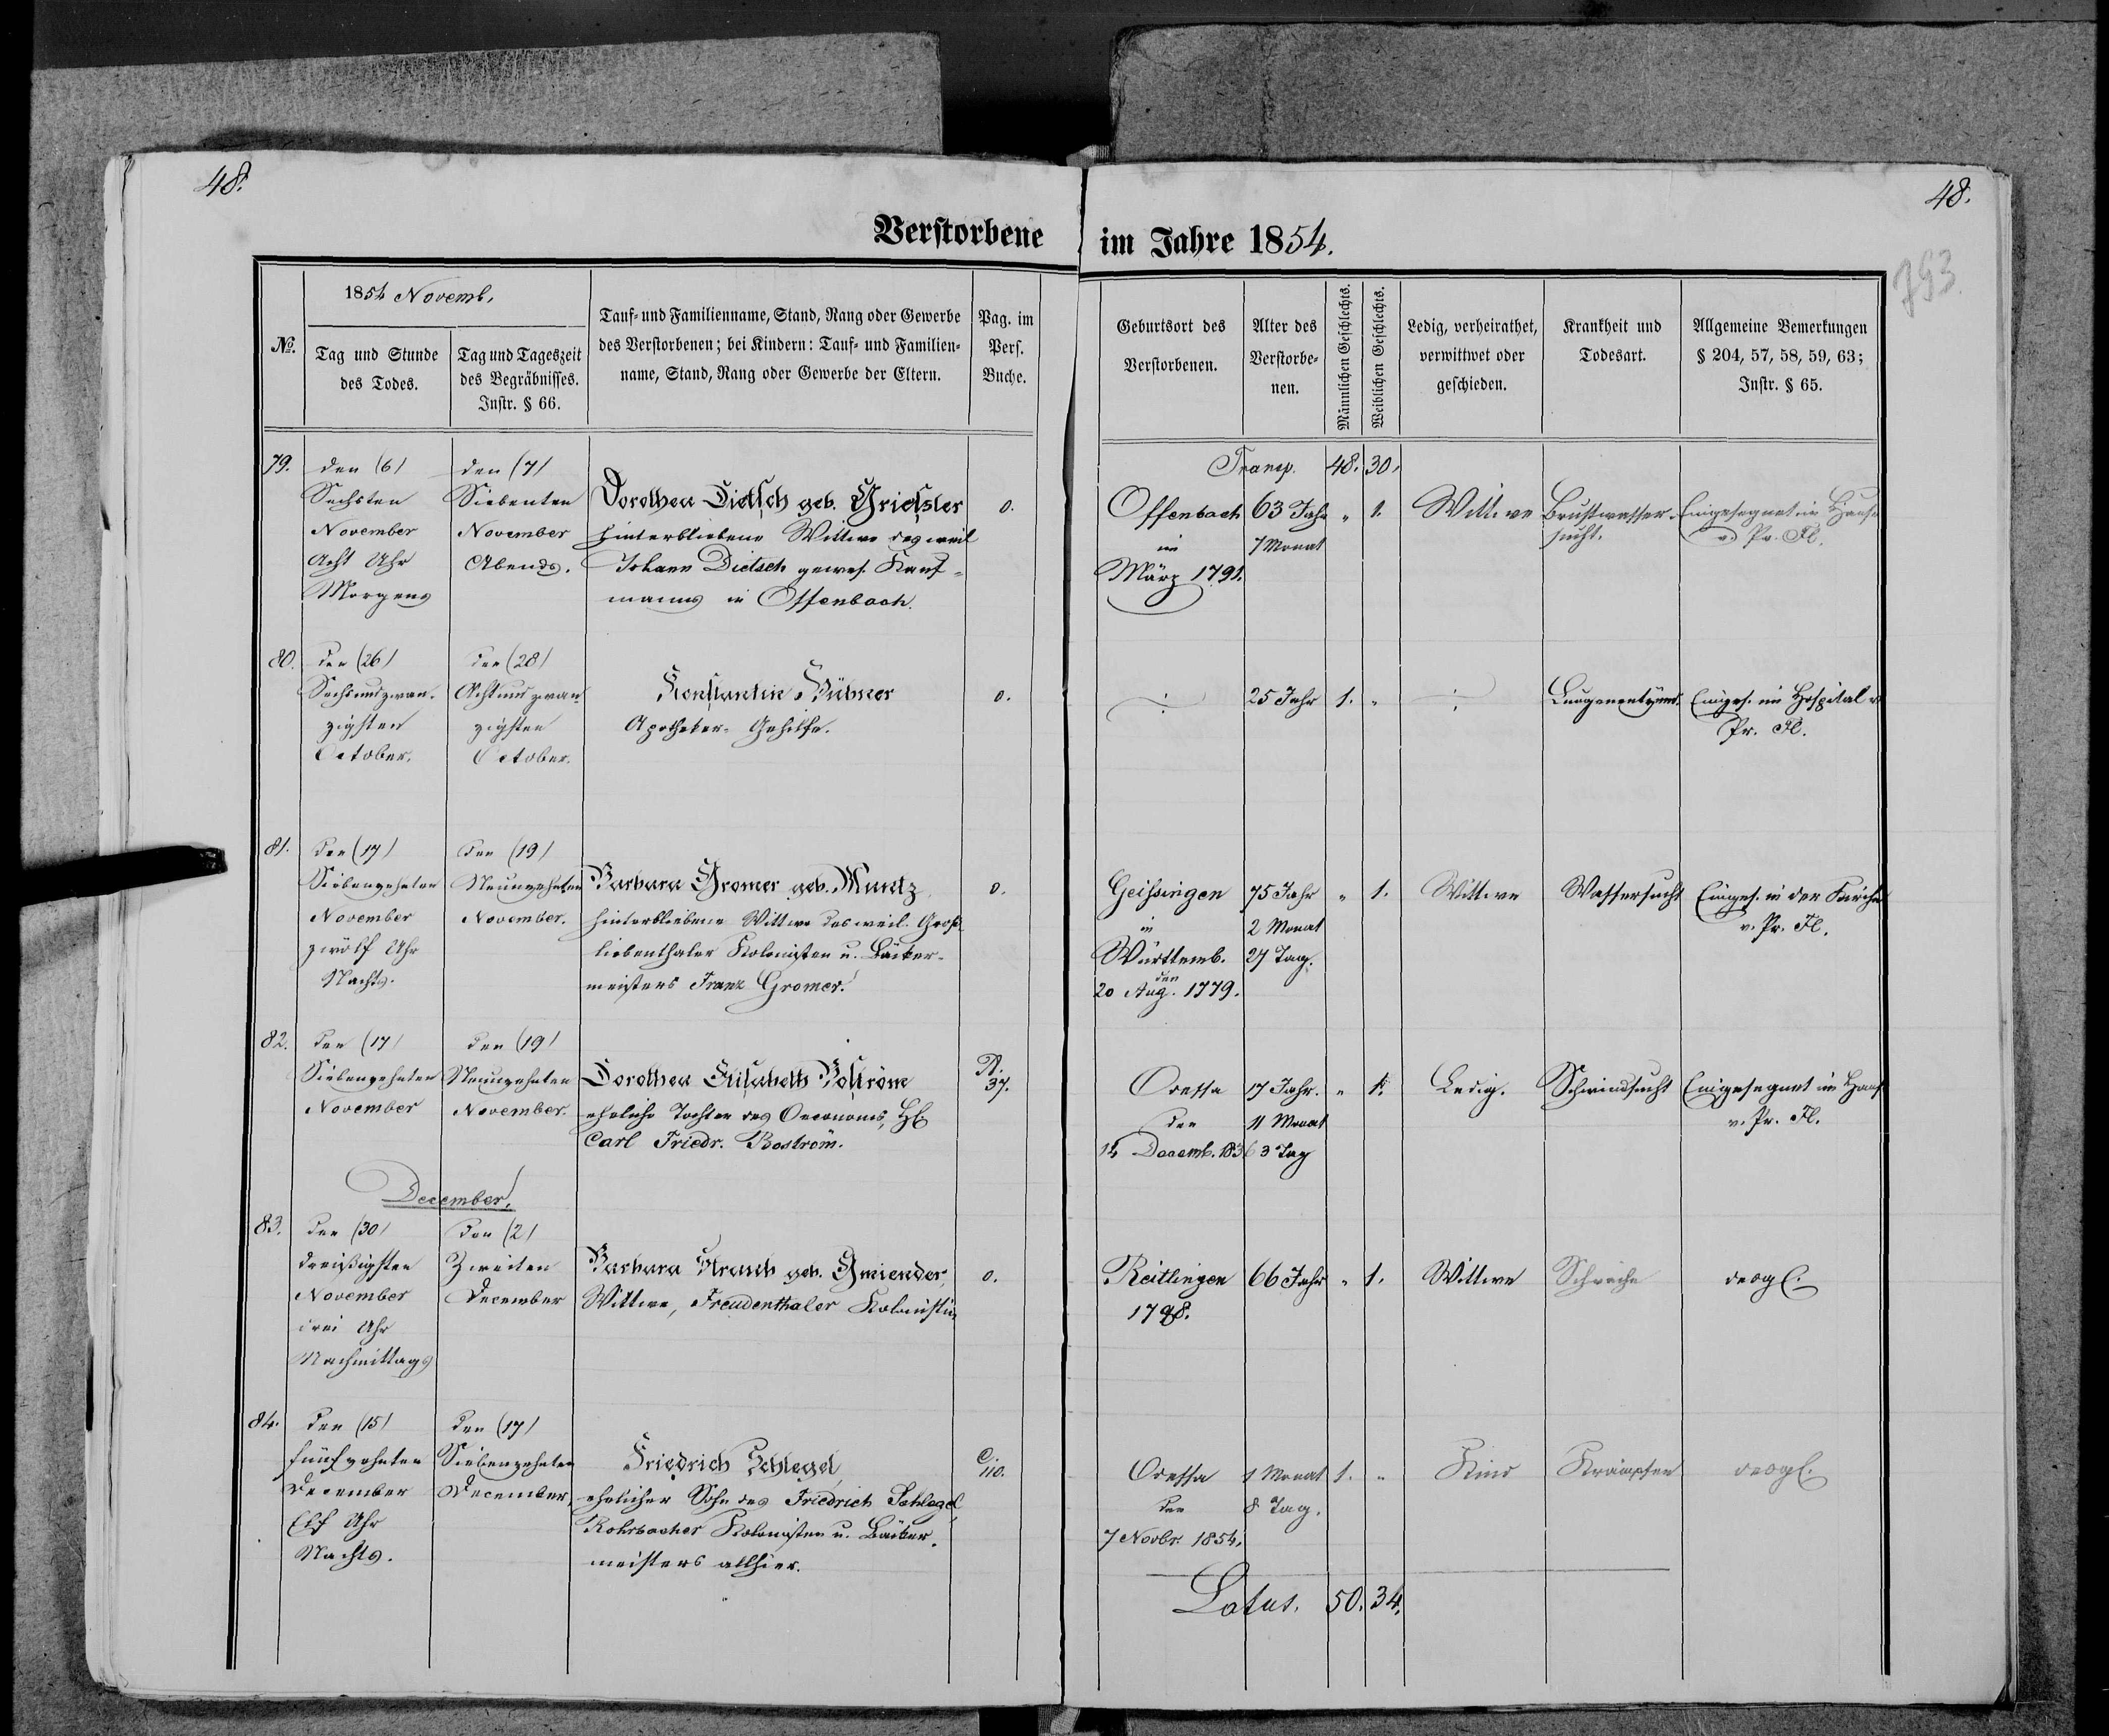 48.
48.
793
Verstorbene im Jahre 1854.
1854 Novemb.
№.
Tag und Stunde
des Todes.
Tag und Tageszeit
des Begräbnisses.
Instr. § 66.
Tauf- und Familienname, Stand, Rang oder Gewerbe
des Verstorbenen; bei Kindern: Tauf- und Familien-
name, Stand, Rang oder Gewerbe der Eltern.
Pag. im
Pers.
Buche.
Geburtsort des
Verstorbenen.
Alter des
Verstorbe-
nen.
Männlichen Geschlechts.
Weiblichen Geschlechts.
Ledig, verheirathet,
verwittwet oder
geschieden.
Krankheit und
Todesart.
Allgemeine Bemerkungen
§ 204, 57, 58, 59, 63;
Instr. § 65.
Transp. 48. 30.
79.
den (6)
Sechsten
November
Acht Uhr
Morgens
den (7)
Siebenten
November
Abends.
Dorothea Dietsch geb.
hinterbliebene Wittwe des weil
Johann Dietsch gewes. Kauf-
manns in Offenbach.
0.
Offenbach
im
März 1791.
63 Jahr
7 Monat
" 1.
Wittwe
Brustwasser-
sucht.
Eingesegnet im Hause
v. Pr. Fl.
80.
den (26)
Sechsundzwan-
zigsten
October.
den (28)
Achtundzwan-
zigsten
October.
Konstantin Hübner
Apotheker-Gehilfe.
0.
÷
25 Jahr
1. "
÷
Lungenentzünd.
Einges. im Hospital v.
Pr. Fl.
81.
den (17)
Siebenzehnten
November
zwölf Uhr
Nachts.
den (19)
Neunzehnten
November.
Barbara Gromer geb. Muntz
hinterbliebene Wittwe des weil. Groß-
liebenthaler Kolonisten u. Bäcker-
meisters Franz Gromer.
0.
Geisingen
in
Württemb.
den
20 Aug. 1779.
75 Jahr
2 Monat
27 Tag.
" 1.
Wittwe
Wassersucht
Einges. in der Kirche
v. Pr. Fl.
82.
den (17)
Siebenzehnten
November
den (19)
Neunzehnten
November.
Dorothea Elisabeth Boström
eheliche Tochter des Oeconoms, H.
Carl Friedr. Boström.
B.
37.
Odessa
den
14 Decemb. 1836
17 Jahr.
11 Monat
3 Tag
" 1.
Ledig.
Schwindsucht
Eingesegnet im Haus
v. Pr. Fl.
December.
83.
den (30)
dreißigsten
November
drei Uhr
Nachmittags
den (2)
Zweiten
December
Barbara Straub geb. Gmiender,
Wittwe, Freudenthaler Kolonistin
0.
Reitlingen
1788.
66 Jahr
" 1.
Wittwe
Schwäche
desgl.
84.
den (15)
fünfzehnten
December
Elf Uhr
Nachts.
den (17)
Siebenzehnten
December,
Friedrich Schlegel,
ehelicher Sohn des Friedrich Schlegel
Rohrbacher Kolonisten u. Bäcker-
meisters allhier.
C.
110.
Odessa
den
7 Novbr. 1854.
1 Monat
8 Tag.
1. "
Kind
Krämpfen
desgl.
Latus. 50. 34.